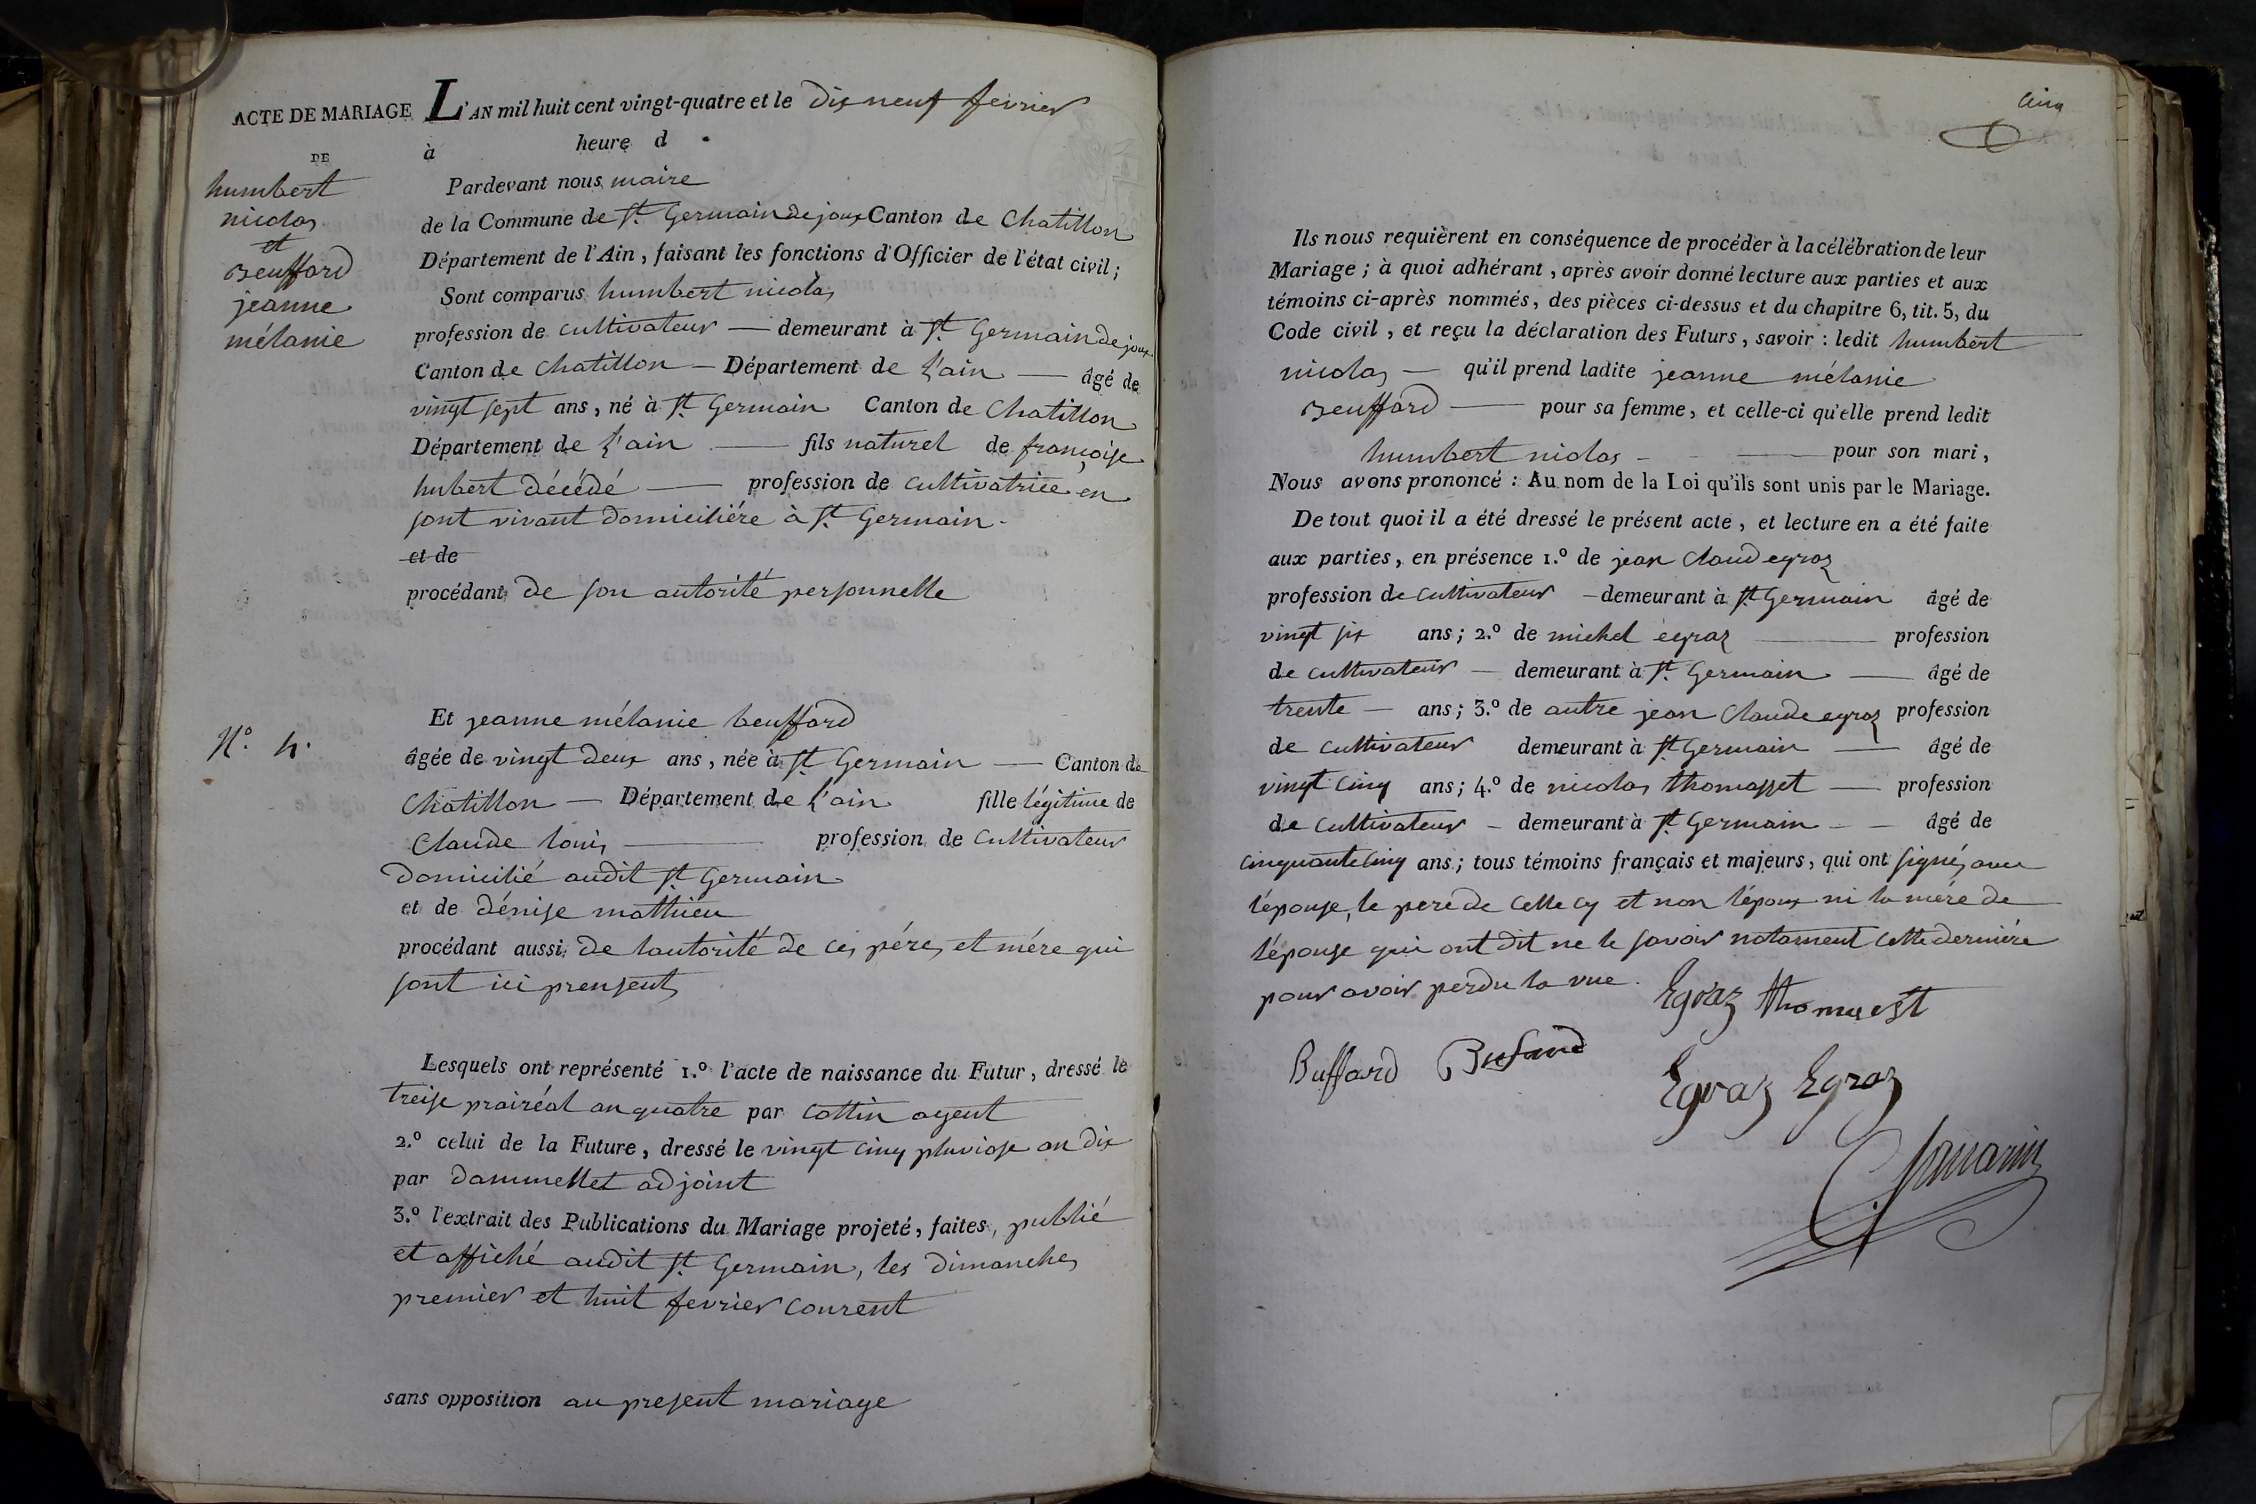 ACTE DE MARIAGE
DE
humbert
nicolas
et
Beuffard
jeanne
mélanie
N.º 4.
L'AN mil huit cent vingt-quatre et le dix neuf fevrier
à heure d
Pardevant nous maire
de la Commune de St. Germain de joux Canton de Chatillon
Département de l'Ain, faisant les fonctions d'Officier de l'état civil;
Sont comparus humbert nicolas
profession de cultivateur — demeurant à St. Germain de joux
Canton de Chatillon — Département de L'ain — âgé de
vingt sept ans, né à St. Germain Canton de Chatillon
Département de L'ain — fils naturel de françoise
hubert décédé — profession de cultivatrice en
sont vivant domiciliére à St. Germain.
et de
procédant de son autorité personnelle
Et jeanne mélanie beuffard
âgée de vingt deux ans, née à St. Germain — Canton de
Chatillon — Département de L'ain fille légitime de
Claude louis — profession de Cultivateur
domicilié audit St. Germain
et de dénise mathieu
procédant aussi de lautorité de ces péres et mére qui
sont ici prensents
Lesquels ont représenté 1.º l'acte de naissance du Futur, dressé le
treise prairéal an quatre par cottin agent
2.º celui de la Future, dressé le vingt cinq pluviose an dix
par dammellet adjoint
3.º l'extrait des Publications du Mariage projeté, faites, publié
et affiché audit St. Germain, les dimanches
premier et huit fevrier courent
sans opposition au present mariage
cinq
Ils nous requièrent en conséquence de procéder à la célébration de leur
Mariage; à quoi adhérant, après avoir donné lecture aux parties et aux
témoins ci-après nommés, des pièces ci-dessus et du chapitre 6, tit. 5, du
Code civil, et reçu la déclaration des Futurs, savoir: ledit humbert
nicolas — qu'il prend ladite jeanne mélanie
Beuffard — pour sa femme, et celle-ci qu'elle prend ledit
humbert niclas — pour son mari,
Nous avons prononcé: Au nom de la Loi qu'ils sont unis par le Mariage.
De tout quoi il a été dressé le présent acte, et lecture en a été faite
aux parties, en présence 1.º de jean Claud egraz
profession de cultivateur — demeurant à St. Germain âgé de
vingt six ans; 2.º de michel égraz — profession
de cultivateur — demeurant à St. Germain — âgé de
trente — ans; 3.º de autre jean Claude egraz profession
de cultivateur demeurant à St. Germain — âgé de
vingt cinq ans; 4.º de nicolas thomasset — profession
de cultivateur — demeurant à St. Germain — — âgé de
cinquante cinq ans; tous témoins français et majeurs, qui ont signés avec
l'épouse, le pere de celle cy et non l'époux ni la mére de
l'épouse qui ont dit ne le savoir notament cette derniére
pour avoir perdu la vue.
Egraz thomaest
Buffard Bufard
Egraz Egraz